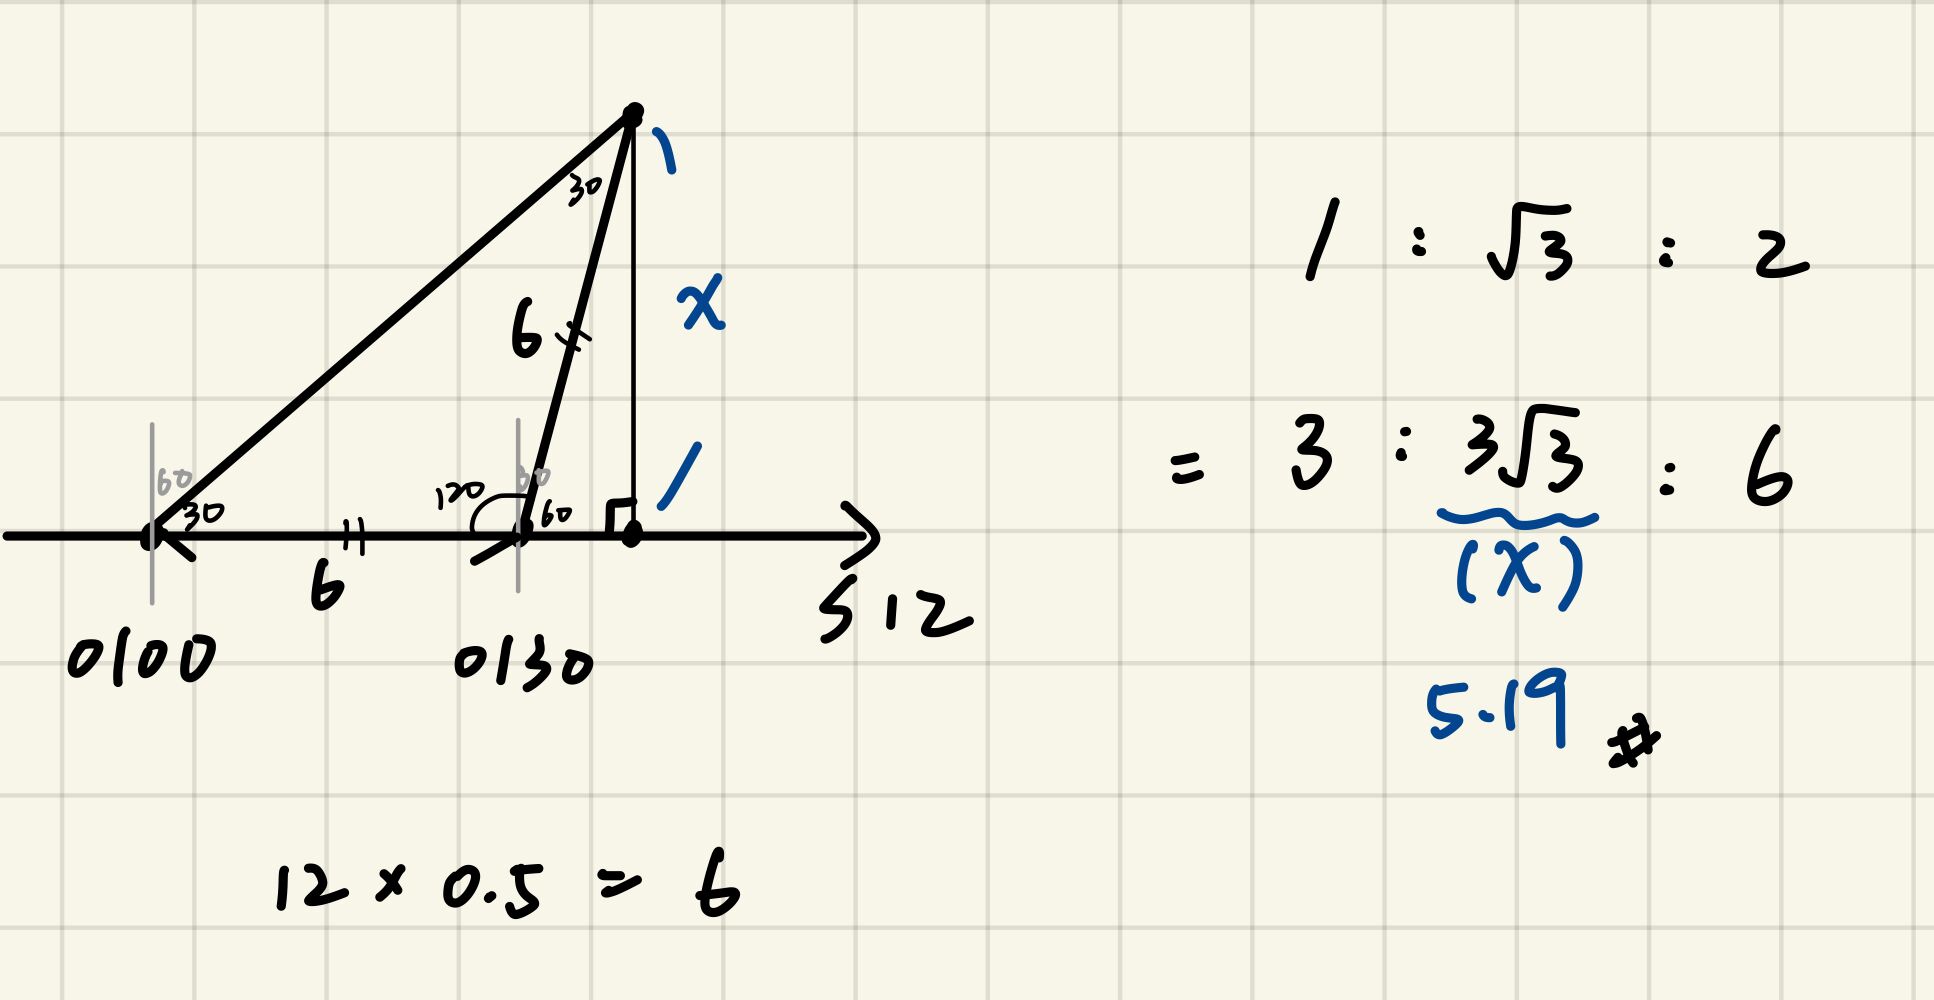 30
6
x
60
30
120
60
60
6
S 12
0100
0130
12 × 0.5 = 6
1 : √3 : 2
= 3 : 3√3 : 6
(x)
5.19 #